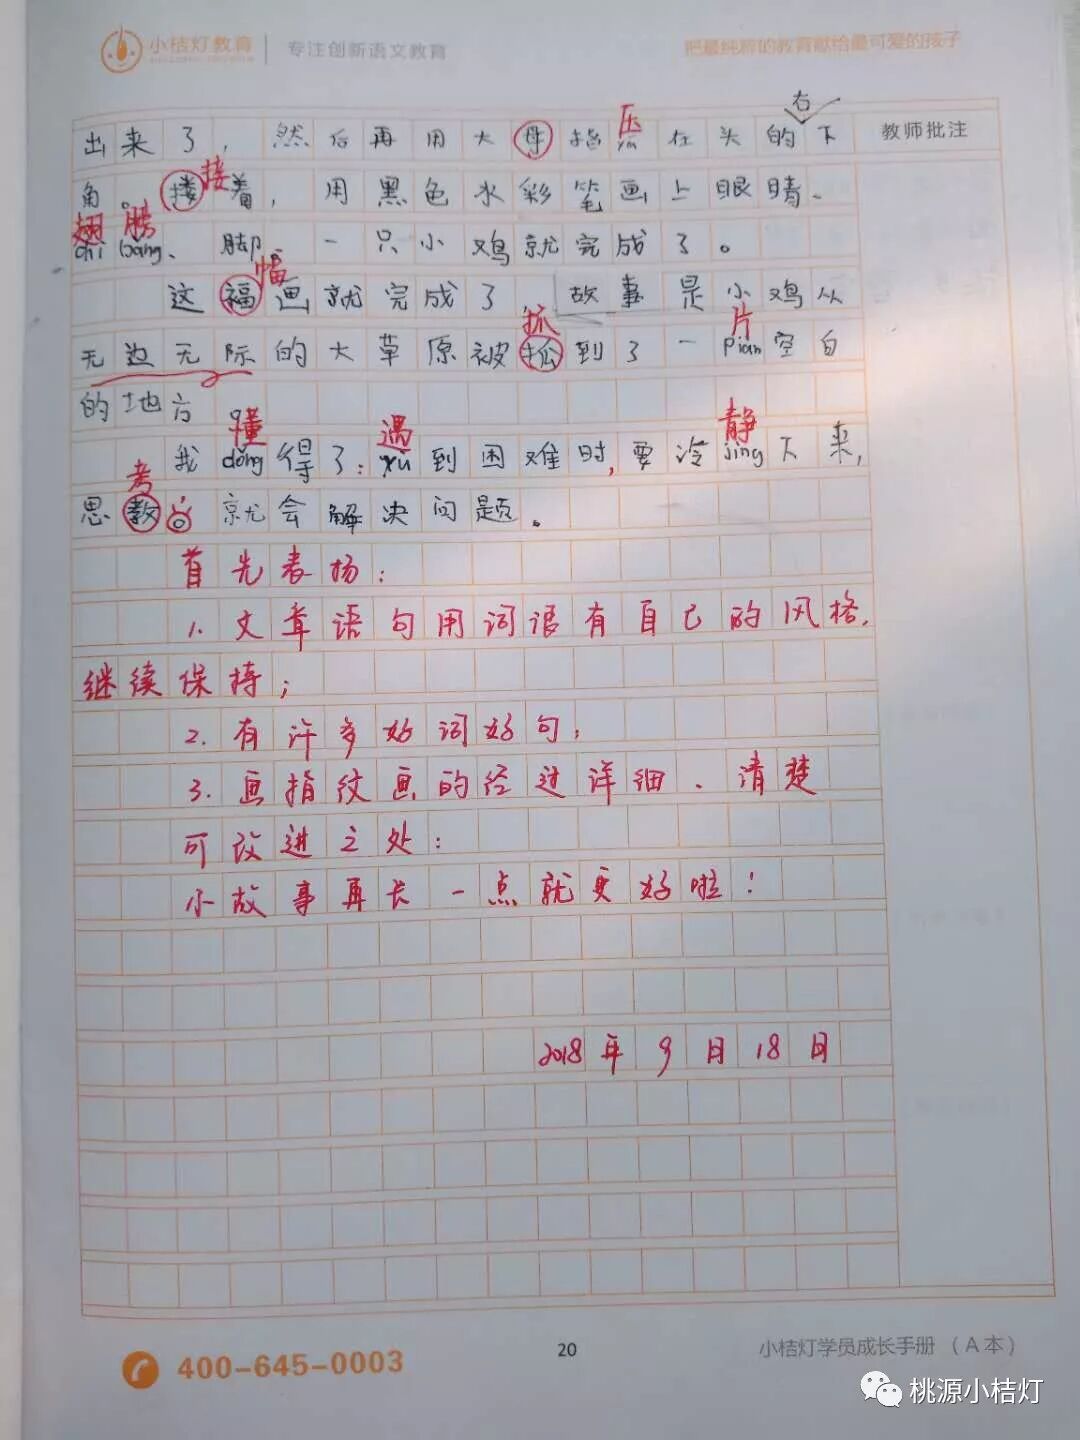 小桔灯教育 专注创新语文教育 把最纯粹的教育献给最可爱的孩子
教师批注
右
压
出来了，然后再用大母指ya在头的下
接
角。搂着，用黑色水彩笔画上眼睛、
翅膀
chi bang、脚。一只小鸡就完成了。
幅
这福画就完成了 故事是小鸡从
抓 片
无边无际的大草原被抓到了一pian空白
的地方
懂 遇 静
我dǒng得了：yù到困难时，要冷jìng下来，
考
思教 就会解决问题。
首先表扬：
1. 文章语句用词很有自己的风格，
继续保持；
2. 有许多好词好句；
3. 画指纹画的经过详细、清楚
可改进之处：
小故事再长一点就更好啦！
2018年9月18日
400-645-0003 20 小桔灯学员成长手册（A本）
桃源小桔灯